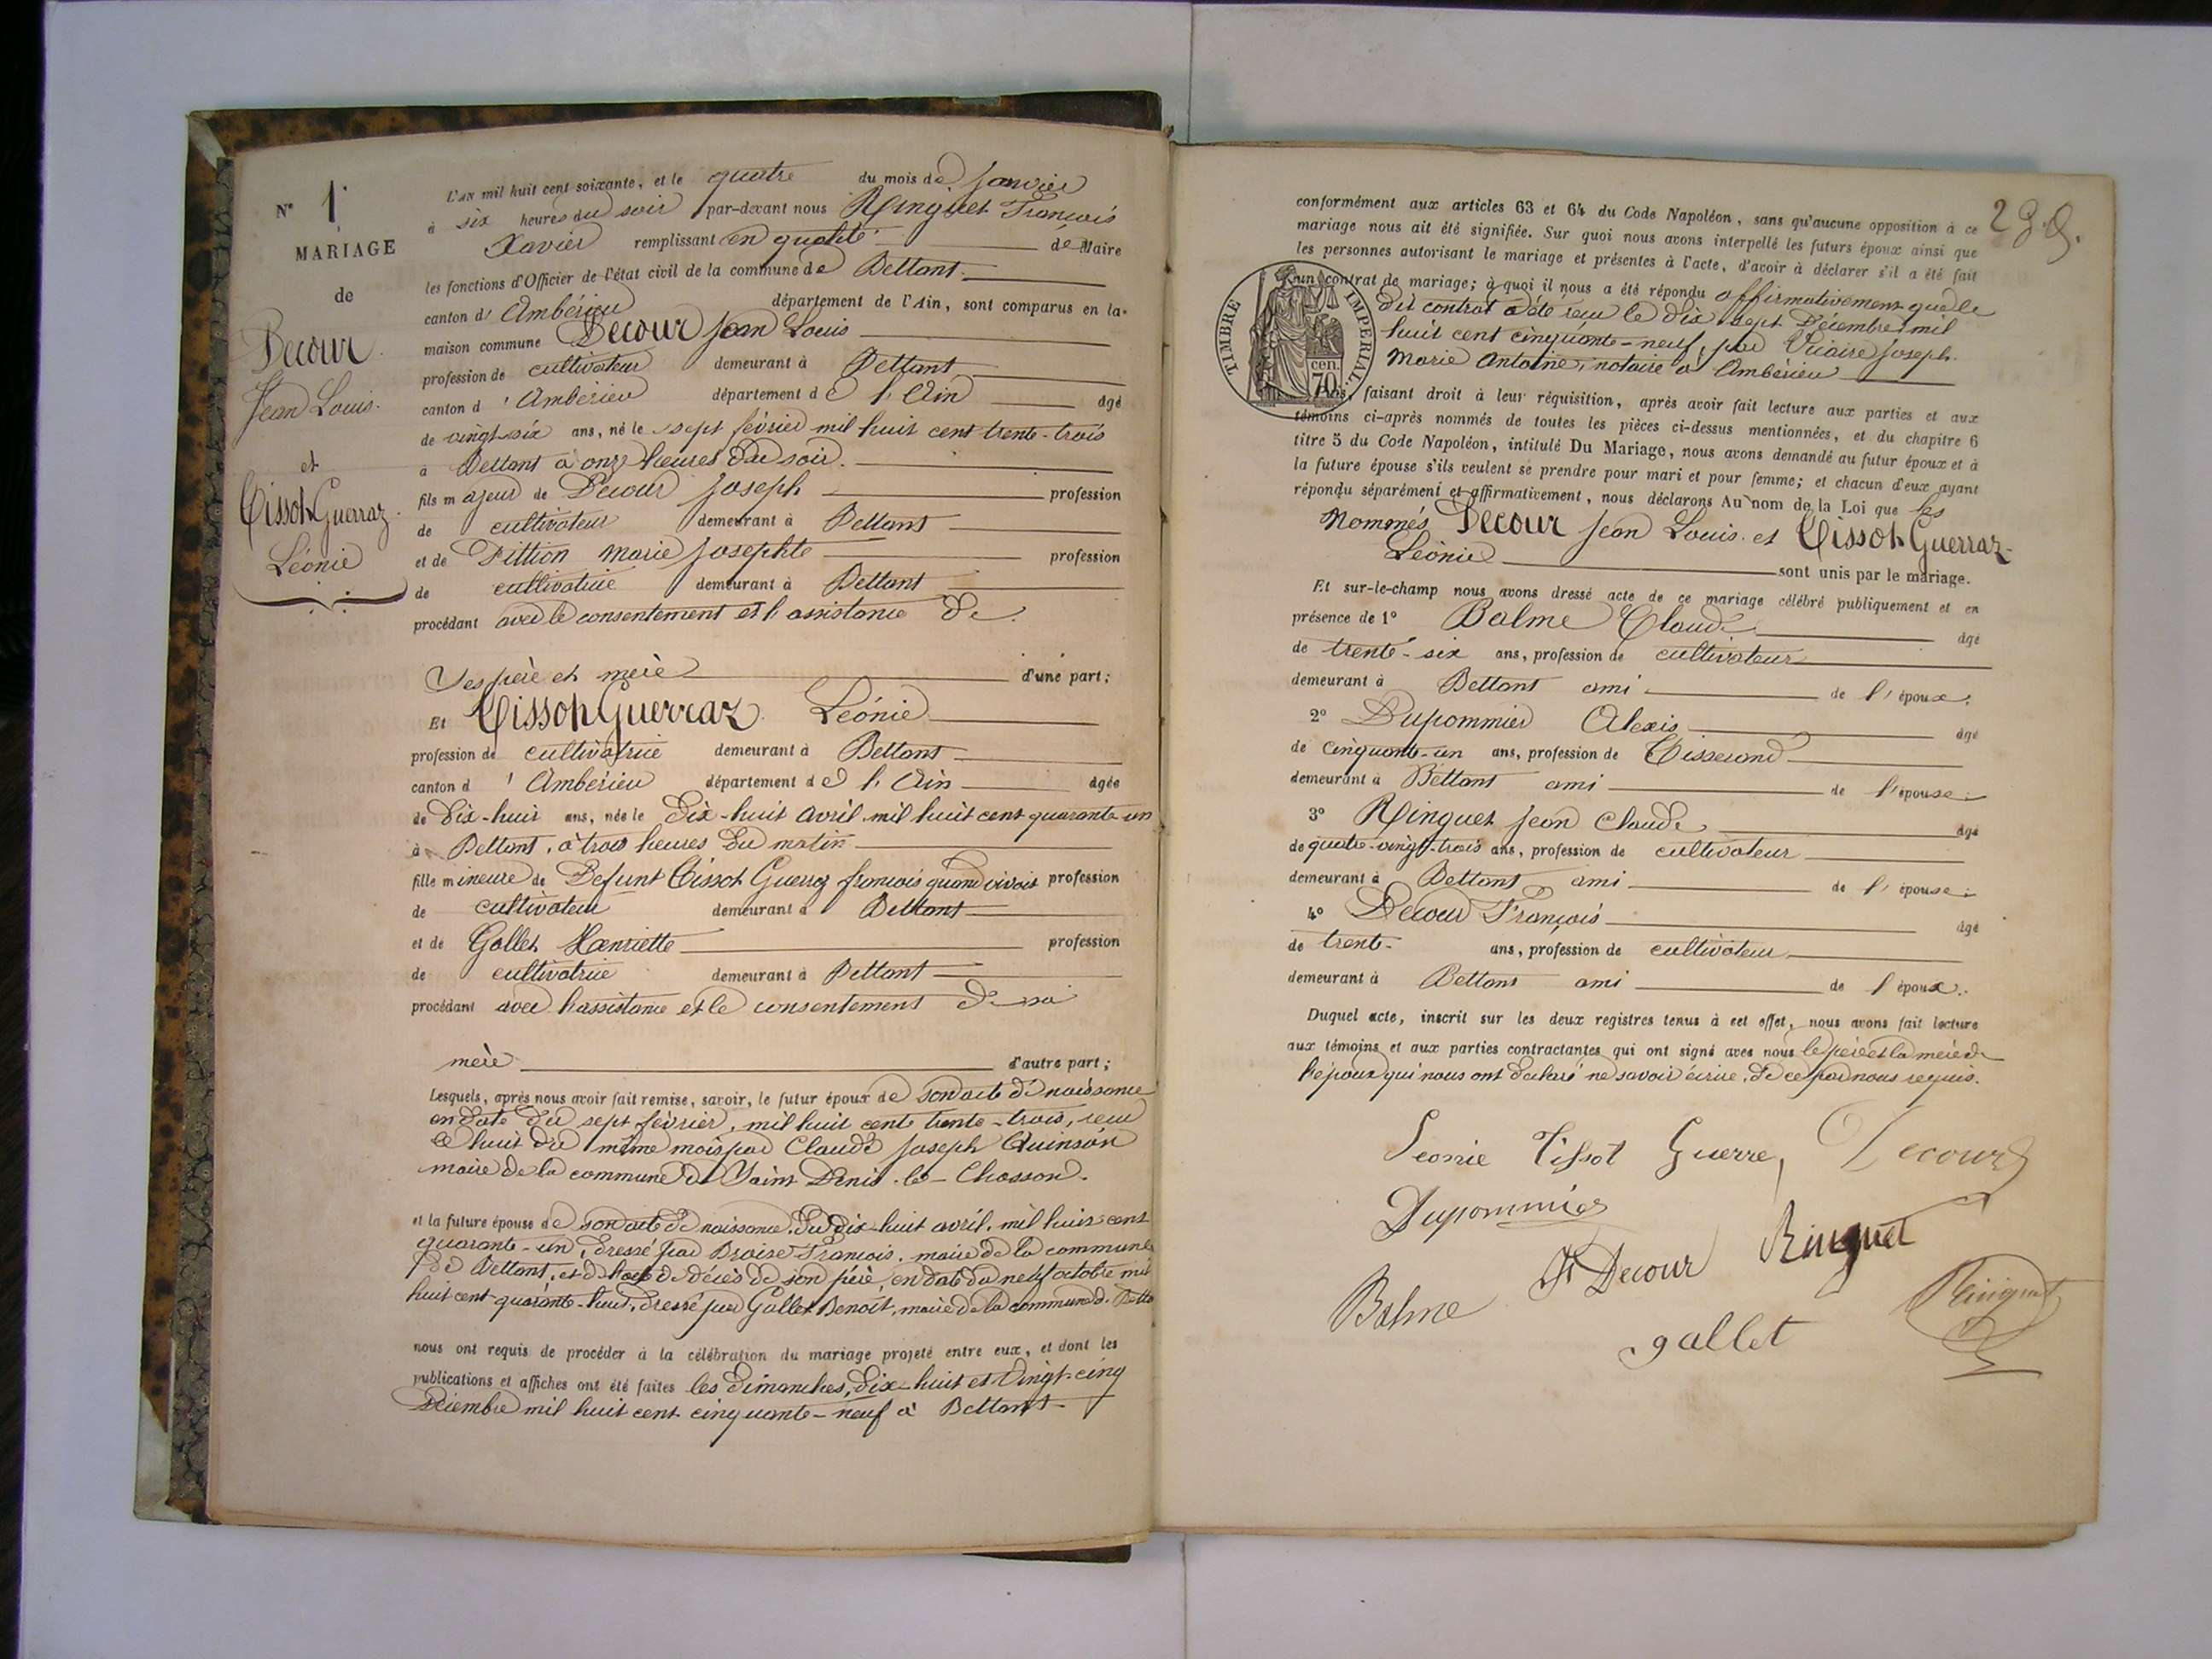 N° 1
MARIAGE
de
Decour
Jean Louis.
et
Tissot Guerraz
Léonie
L'AN mil huit cent soixante, et le quatre du mois de Janvier
à six heures du soir par-devant nous Ringuet François
Xavier remplissant en qualité de Maire
les fonctions d'Officier de l'état civil de la commune de Bettant
canton d'Ambérieu département de l'Ain, sont comparus en la
maison commune Decour Jean Louis
profession de cultivateur demeurant à Bettant
canton d'Ambérieu département de l'Ain âgé
de vingt-six ans, né le sept février mil huit cent trente-trois
à Bettant à onze heures du soir.
fils majeur de Decour Joseph profession
de cultivateur demeurant à Bettant
et de Fittion Marie Josephte profession
de cultivatrice demeurant à Bettant
procédant avec le consentement et l'assistance de
ses père et mère d'une part;
Et Tissot Guerraz Léonie
profession de cultivatrice demeurant à Bettant
canton d'Ambérieu département de l'Ain âgée
de dix-huit ans, née le dix-huit avril mil huit cent quarante-un
à Bettant, à trois heures du matin
fille mineure de Defunt Tissot Guerraz françois quand vivait profession
de cultivateur demeurant à Bettant
et de Gallet Henriette profession
de cultivatrice demeurant à Bettant
procédant avec l'assistance et le consentement de sa
mère d'autre part;
Lesquels, après nous avoir fait remise, savoir, le futur époux de son acte de naissance
en date du sept février, mil huit cent trente-trois, reçu
le huit du même mois par Claude Joseph Quinson
maire de la commune de Saint Denis-le-Chosson.
et la future épouse de son acte de naissance, du dix-huit avril, mil huit cent
quarante-un, dressé par Braise François, maire de la commune
de Bettant, et de l'acte de décès de son père en date du neuf octobre mil
huit cent quarante-huit, dressé par Gallet Benoît, maire de la commune de Betta
nous ont requis de procéder à la célébration du mariage projeté entre eux, et dont les
publications et affiches ont été faites les dimanches, dix-huit et vingt-cinq
Décembre mil huit cent cinquante-neuf à Bettant
conformément aux articles 63 et 64 du Code Napoléon, sans qu'aucune opposition à ce
mariage nous ait été signifiée. Sur quoi nous avons interpellé les futurs époux ainsi que
les personnes autorisant le mariage et présentes à l'acte, d'avoir à déclarer s'il a été fait
un contrat de mariage; à quoi il nous a été répondu affirmativement que le
dit contrat a été reçu le dix-sept Décembre mil
huit cent cinquante-neuf, par Vicaire Joseph
Marie Antoine, notaire à Ambérieu
TIMBRE IMPERIAL.
70 cen.
Nous, faisant droit à leur réquisition, après avoir fait lecture aux parties et aux
témoins ci-après nommés de toutes les pièces ci-dessus mentionnées, et du chapitre 6
titre 5 du Code Napoléon, intitulé Du Mariage, nous avons demandé au futur époux et à
la future épouse s'ils veulent se prendre pour mari et pour femme; et chacun d'eux ayant
répondu séparément et affirmativement, nous déclarons Au nom de la Loi que les
Nommés Decour Jean Louis et Tissot Guerraz
Léonie sont unis par le mariage.
Et sur-le-champ nous avons dressé acte de ce mariage célébré publiquement et en
présence de 1° Balme Claude âgé
de trente-six ans, profession de cultivateur
demeurant à Bettant ami de l'époux;
2° Dupommier Alexis âgé
de cinquante-un ans, profession de Tisserand
demeurant à Bettant ami de l'épouse;
3° Ringuet Jean Claude âgé
de quatre-vingt-trois ans, profession de cultivateur
demeurant à Bettant ami de l'épouse;
4° Decour François âgé
de trente ans, profession de cultivateur
demeurant à Bettant ami de l'époux.
Duquel acte, inscrit sur les deux registres tenus à cet effet, nous avons fait lecture
aux témoins et aux parties contractantes qui ont signé avec nous le père et la mère de
l'époux qui nous ont déclaré ne savoir écrire, de ce par nous requis.
Leonie Tissot Guerre, Decour
Dupommier
fs Decour Ringuet
Balme Ringuet
gallet